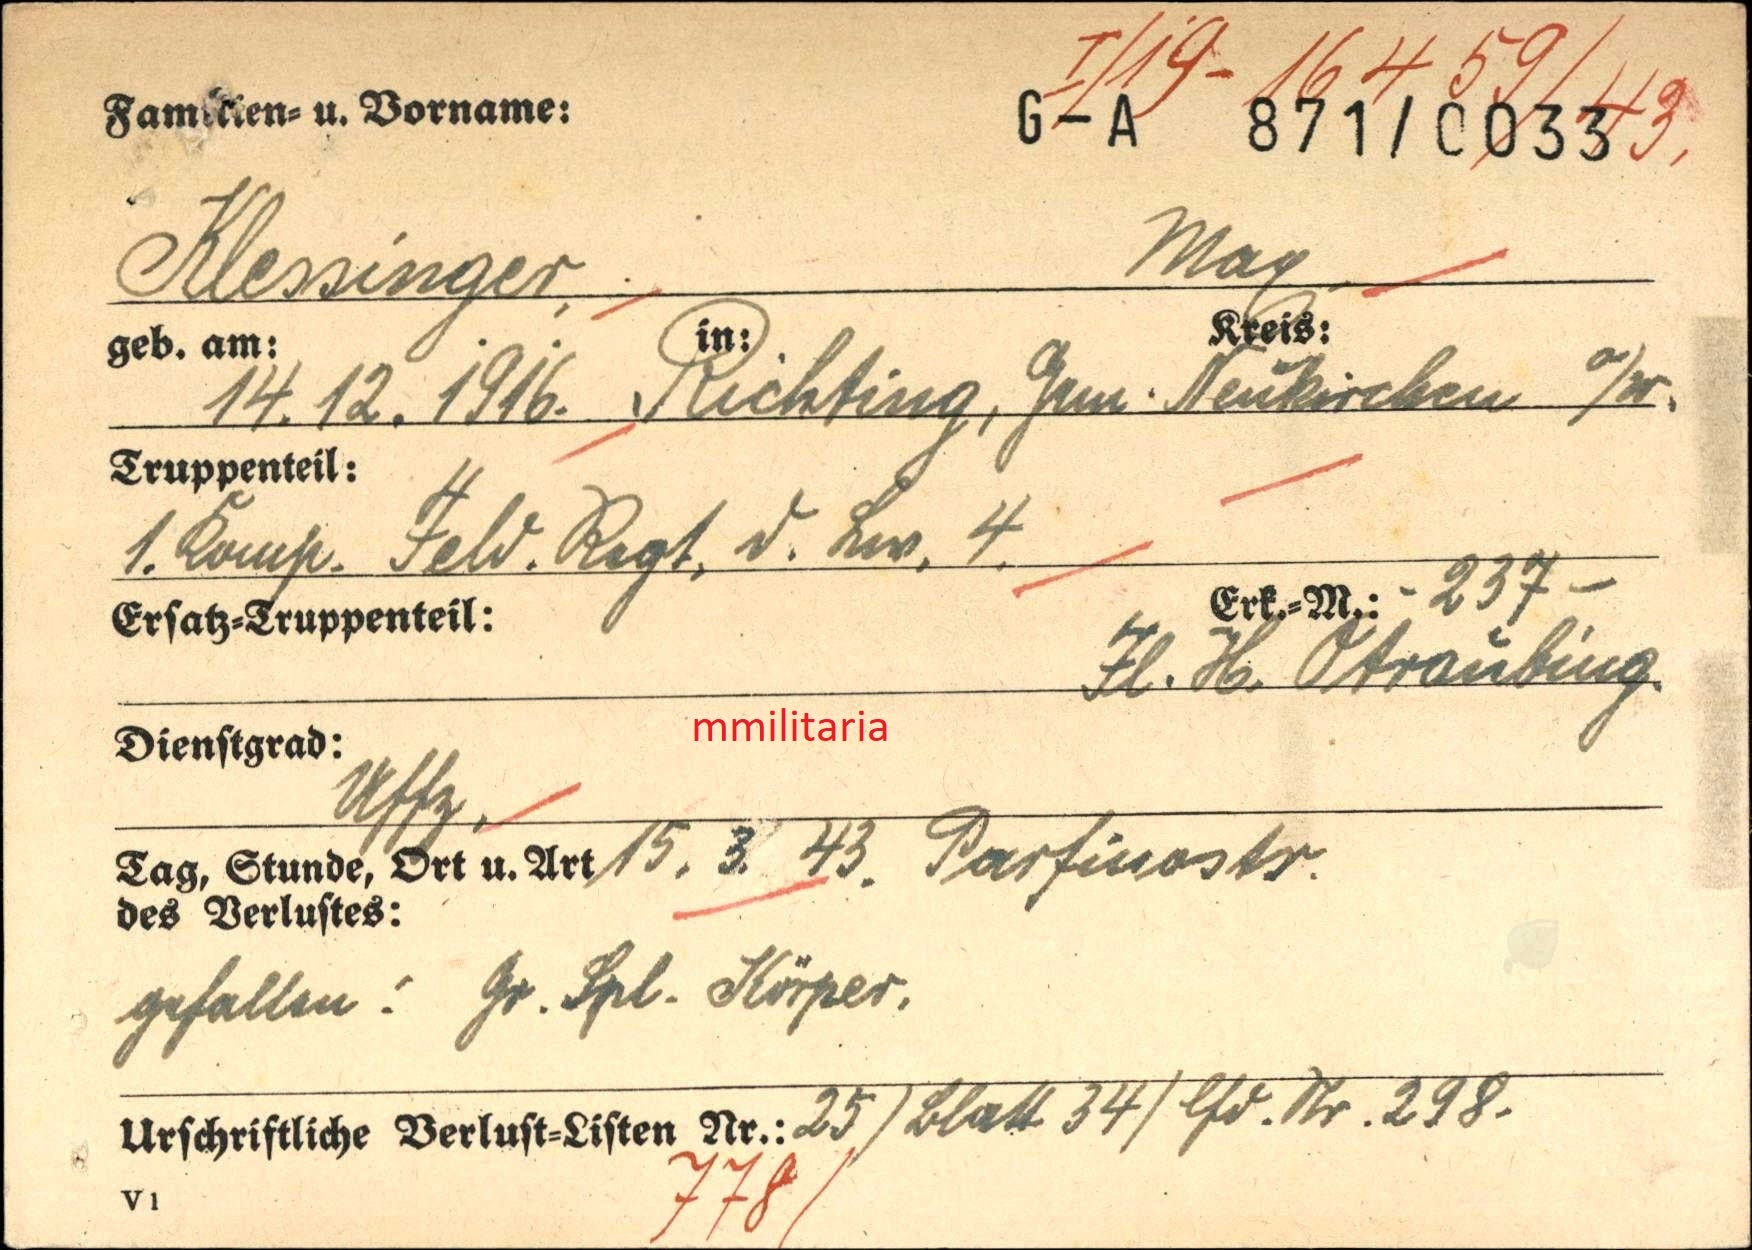 I/19- 16459/43.
Familien- u. Vorname:
G-A 871/0033
Klessinger, Max
geb. am: in: Kreis:
14.12.1916. Richting, Gem. Neukirchen
Truppenteil:
1. Komp. Feld. Regt. d. Lw. 4.
Ersatz-Truppenteil: Erk.-M.: - 237 -
Fl. H. Straubing.
mmilitaria
Dienstgrad:
Uffz.
Tag, Stunde, Ort u. Art 15. 3. 43. Parfinostr.
des Verlustes:
gefallen: Gr. Spl. Körper.
Urschriftliche Verlust-Listen Nr.: 25) Blatt 34/ lfd. Nr. 298.
778/
V1